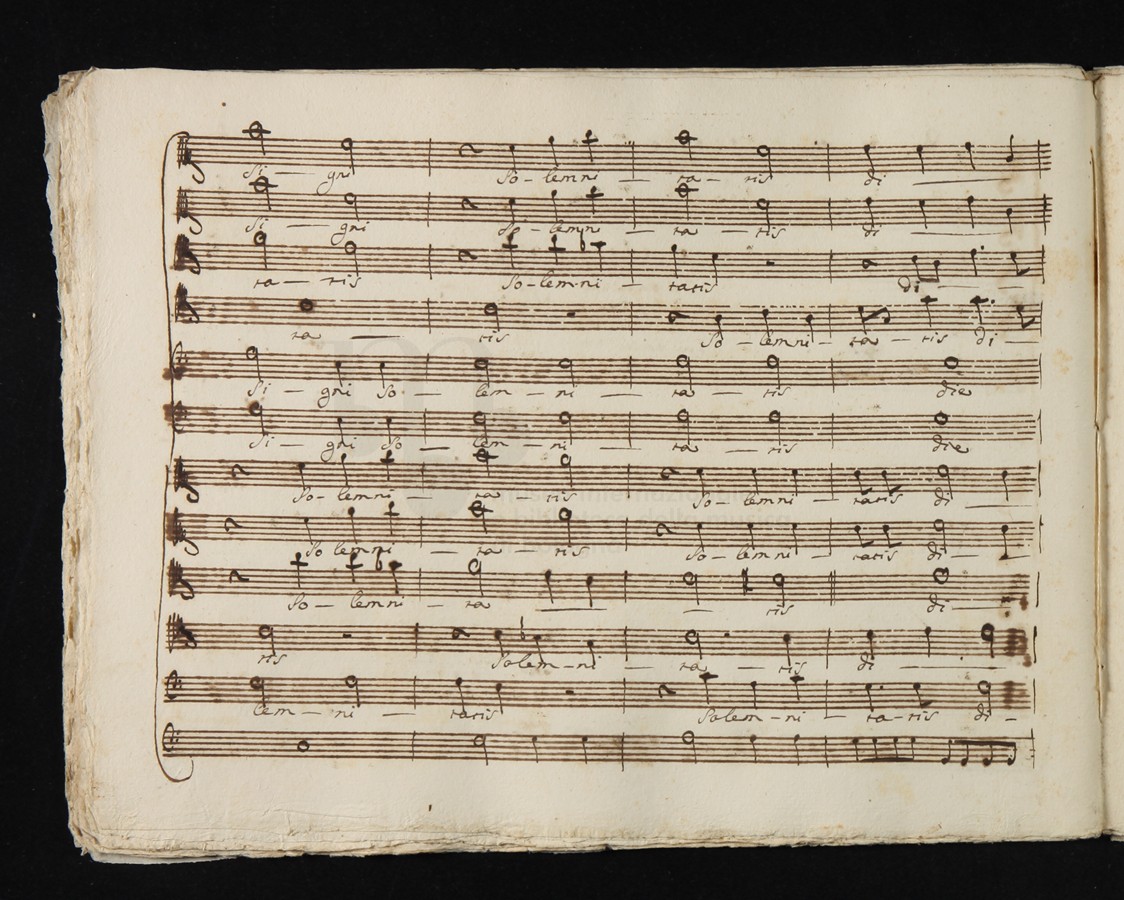 Si — gni So - lemni — ta — tis di —
Si — gni So - lemni — ta — tis di —
ta — tis So - lemni — tatis di —
ta — tis So - lemni - ta - tis di —
Si — gni So — lem — ni — ta — tis die
Si — gni So — lem — ni — ta — tis die
So - lemni — ta — tis So - lemni — tatis di —
So lemni — ta — tis So - lemni — tatis di —
So — lemni — ta — — tis di —
tis Solem - ni — ta — tis di —
lem — ni — tatis Solem - ni — ta - tis di -